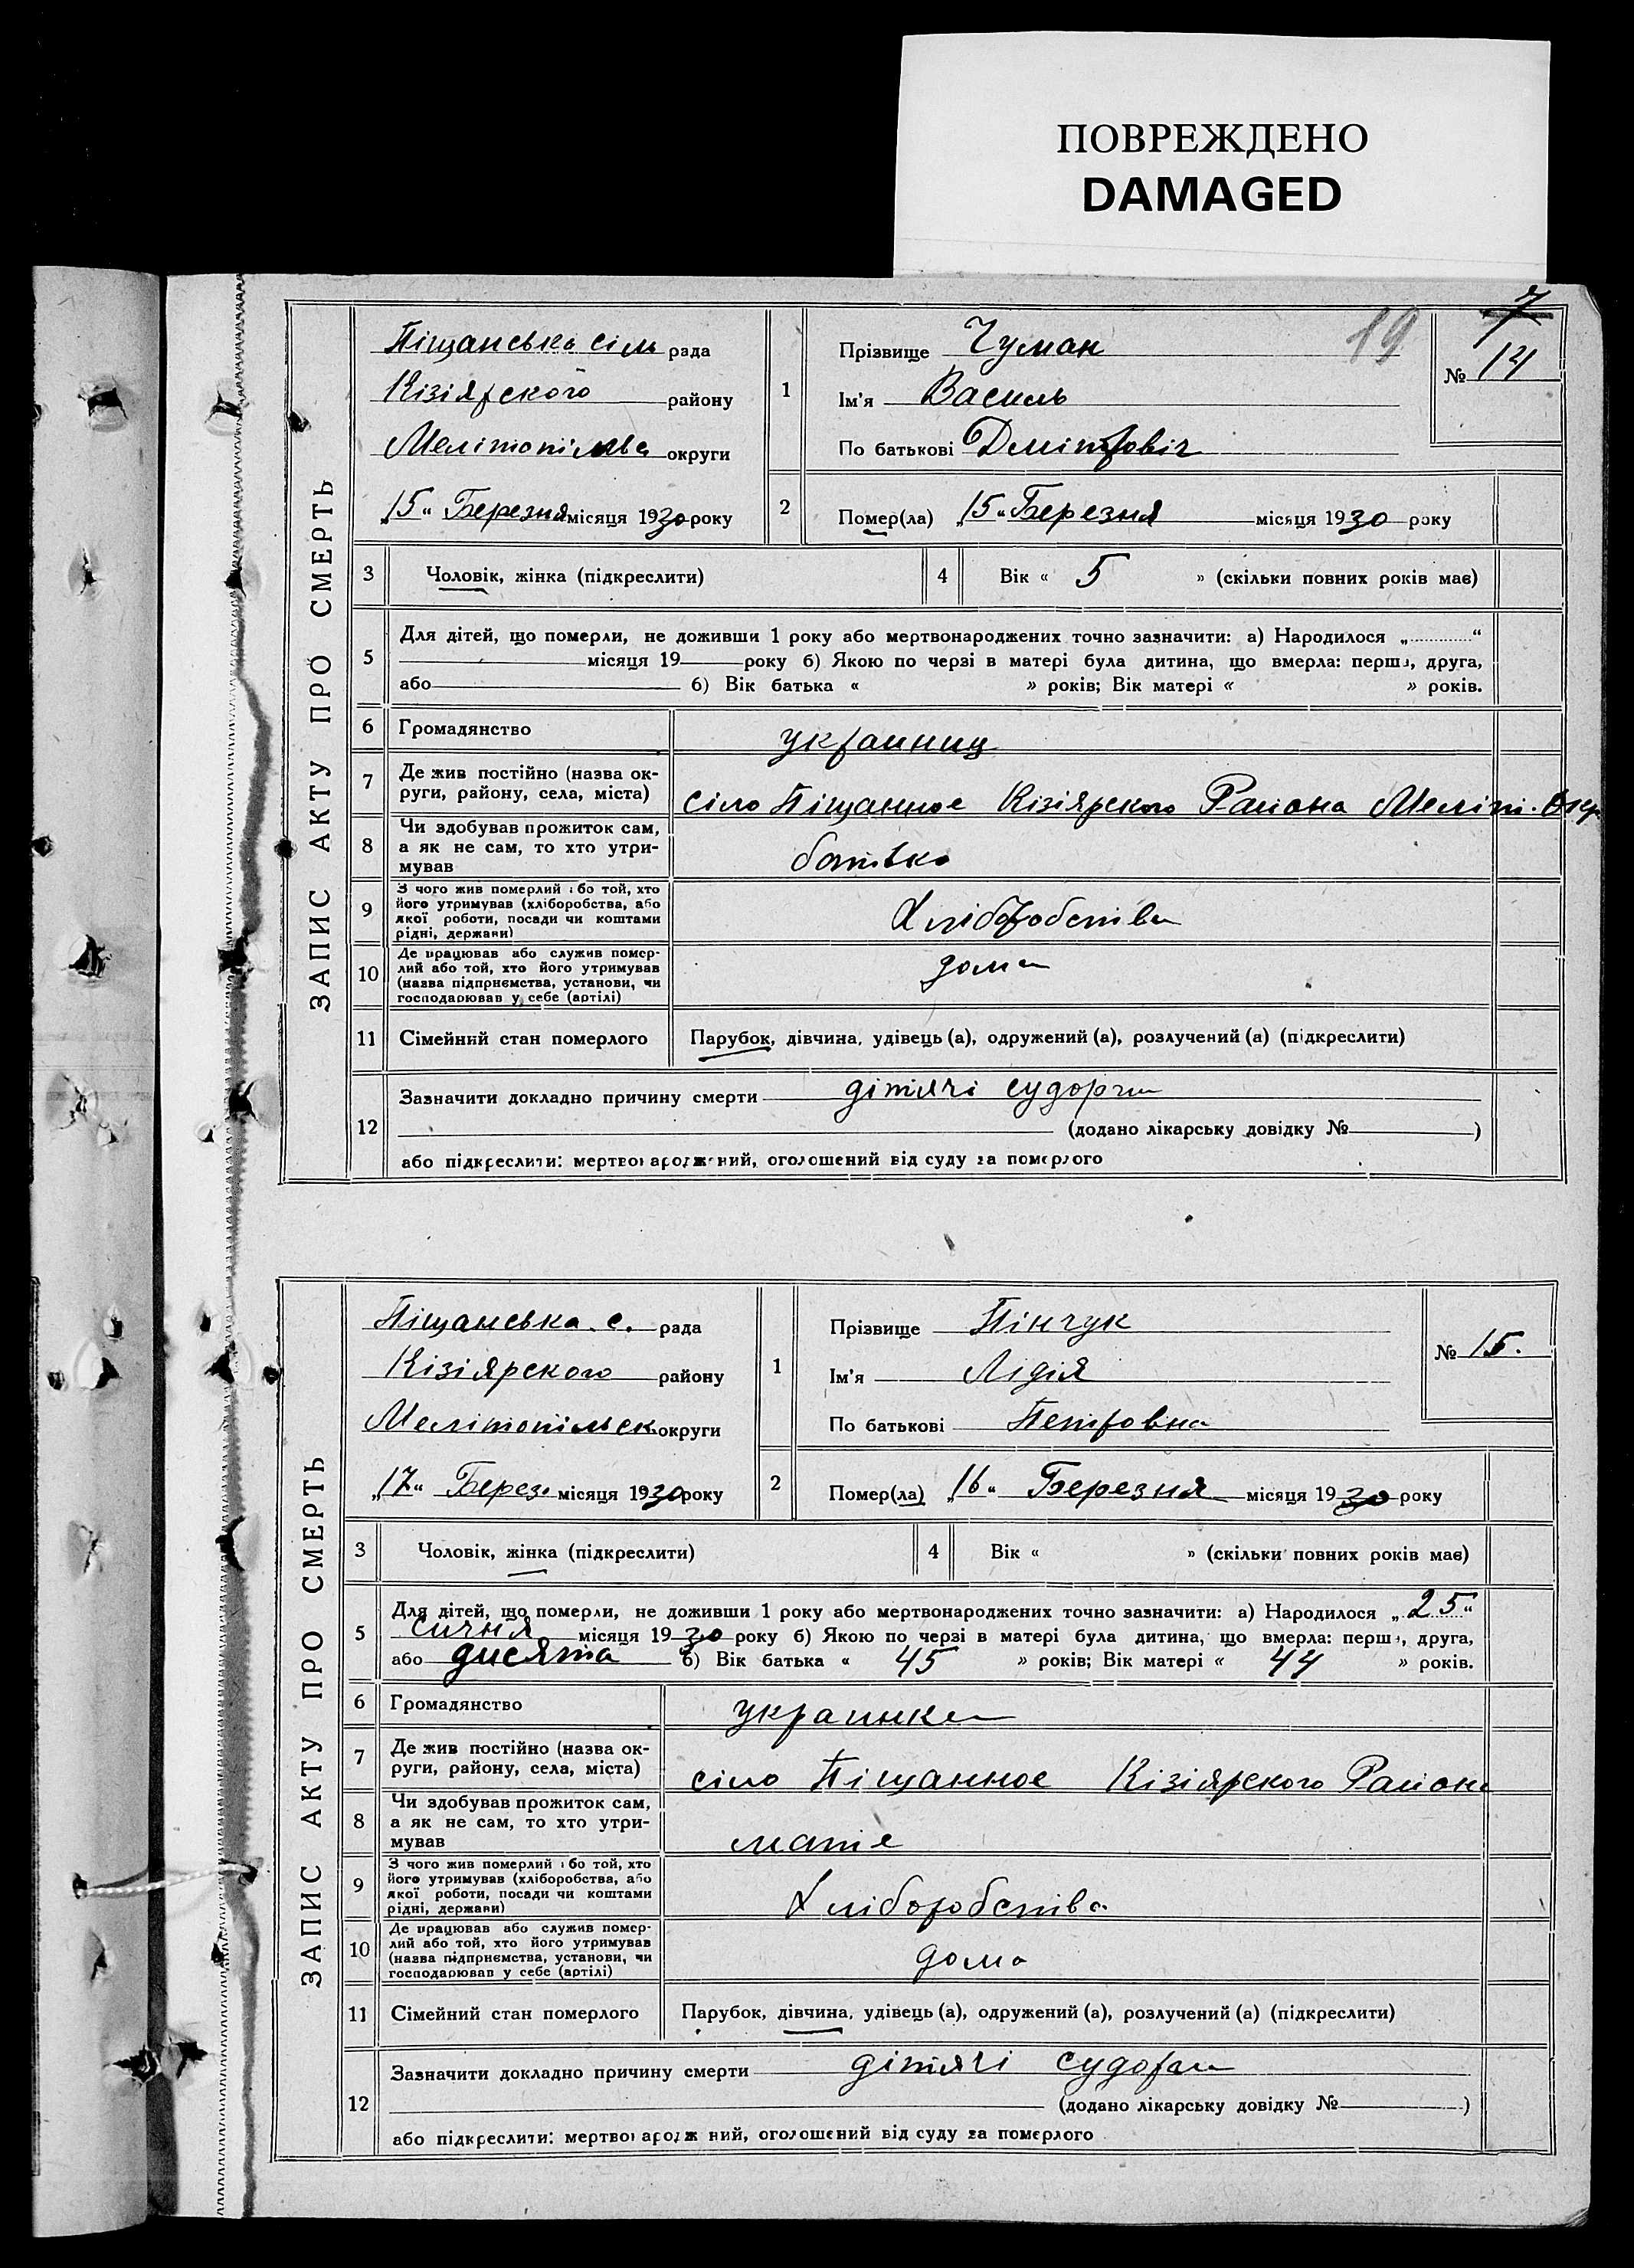 ПОВРЕЖДЕНО
DAMAGED
ЗАПИС АКТУ ПРО СМЕРТЬ
Піщанська сіль рада
Кізіярского району
округи
„15“ Березня місяця 1930 року
1
Прізвище Чумак
19
Ім'я Василь
По батькові Дмітровіч
7
№ 14
2
Помер(ла) „15“ Березня місяця 1930 року
3 Чоловік, жінка (підкреслити)
4 Вік « 5 » (скільки повних років має)
5
Для дітей, що померли, не доживши 1 року або мертвонароджених точно зазначити: а) Народилося „ “
місяця 19 року б) Якою по черзі в матері була дитина, що вмерла: перша, друга,
або б) Вік батька « » років; Вік матері « » років.
6 Громадянство украиниц
7 Де жив постійно (назва ок-
руги, району, села, міста)
сіло Піщанное Кізіярского Раиона Меліт. Окр.
8
Чи здобував прожиток сам,
а як не сам, то хто утри-
мував
батько
9
З чого жив померлий або той, хто
його утримував (хліборобства, або
якої роботи, посади чи коштами
рідні, держави)
Хліборобства
10
Де працював або служив помер-
лий або той, хто його утримував
(назва підприємства, установи, чи
господарював у себе (артілі)
дома
11 Сімейний стан померлого Парубок, дівчина, удівець (а), одружений (а), розлучений (а) (підкреслити)
12
Зазначити докладно причину смерти дітячі судорги
(додано лікарську довідку № )
або підкреслити: мертвонароджений, оголошений від суду за померлого
ЗАПИС АКТУ ПРО СМЕРТЬ
Піщанська. с. рада
Кізіярского району
Мелітопільск округи
„17“ Берез. місяця 1930 року
1
Прізвище Пінчук
Ім'я Лідія
По батькові Петровна
№ 15.
2
Помер(ла) „16“ Березня місяця 1930 року
3 Чоловік, жінка (підкреслити)
4 Вік « » (скільки повних років має)
5
Для дітей, що померли, не доживши 1 року або мертвонароджених точно зазначити: а) Народилося „25“
сичня місяця 1930 року б) Якою по черзі в матері була дитина, що вмерла: перша, друга,
або дисята б) Вік батька « 45 » років; Вік матері « 44 » років.
6 Громадянство украинка
7 Де жив постійно (назва ок-
руги, району, села, міста)
сіло Піщанное Кізіярского Раиона
8
Чи здобував прожиток сам,
а як не сам, то хто утри-
мував
9
З чого жив померлий або той, хто
його утримував (хліборобства, або
якої роботи, посади чи коштами
рідні, держави)
Хліборобства
10
Де працював або служив помер-
лий або той, хто його утримував
(назва підприємства, установи, чи
господарював у себе (артілі)
дома
11 Сімейний стан померлого Парубок, дівчина, удівець (а), одружений (а), розлучений (а) (підкреслити)
12
Зазначити докладно причину смерти дітячі судорги
(додано лікарську довідку № )
або підкреслити: мертвонароджений, оголошений від суду за померлого